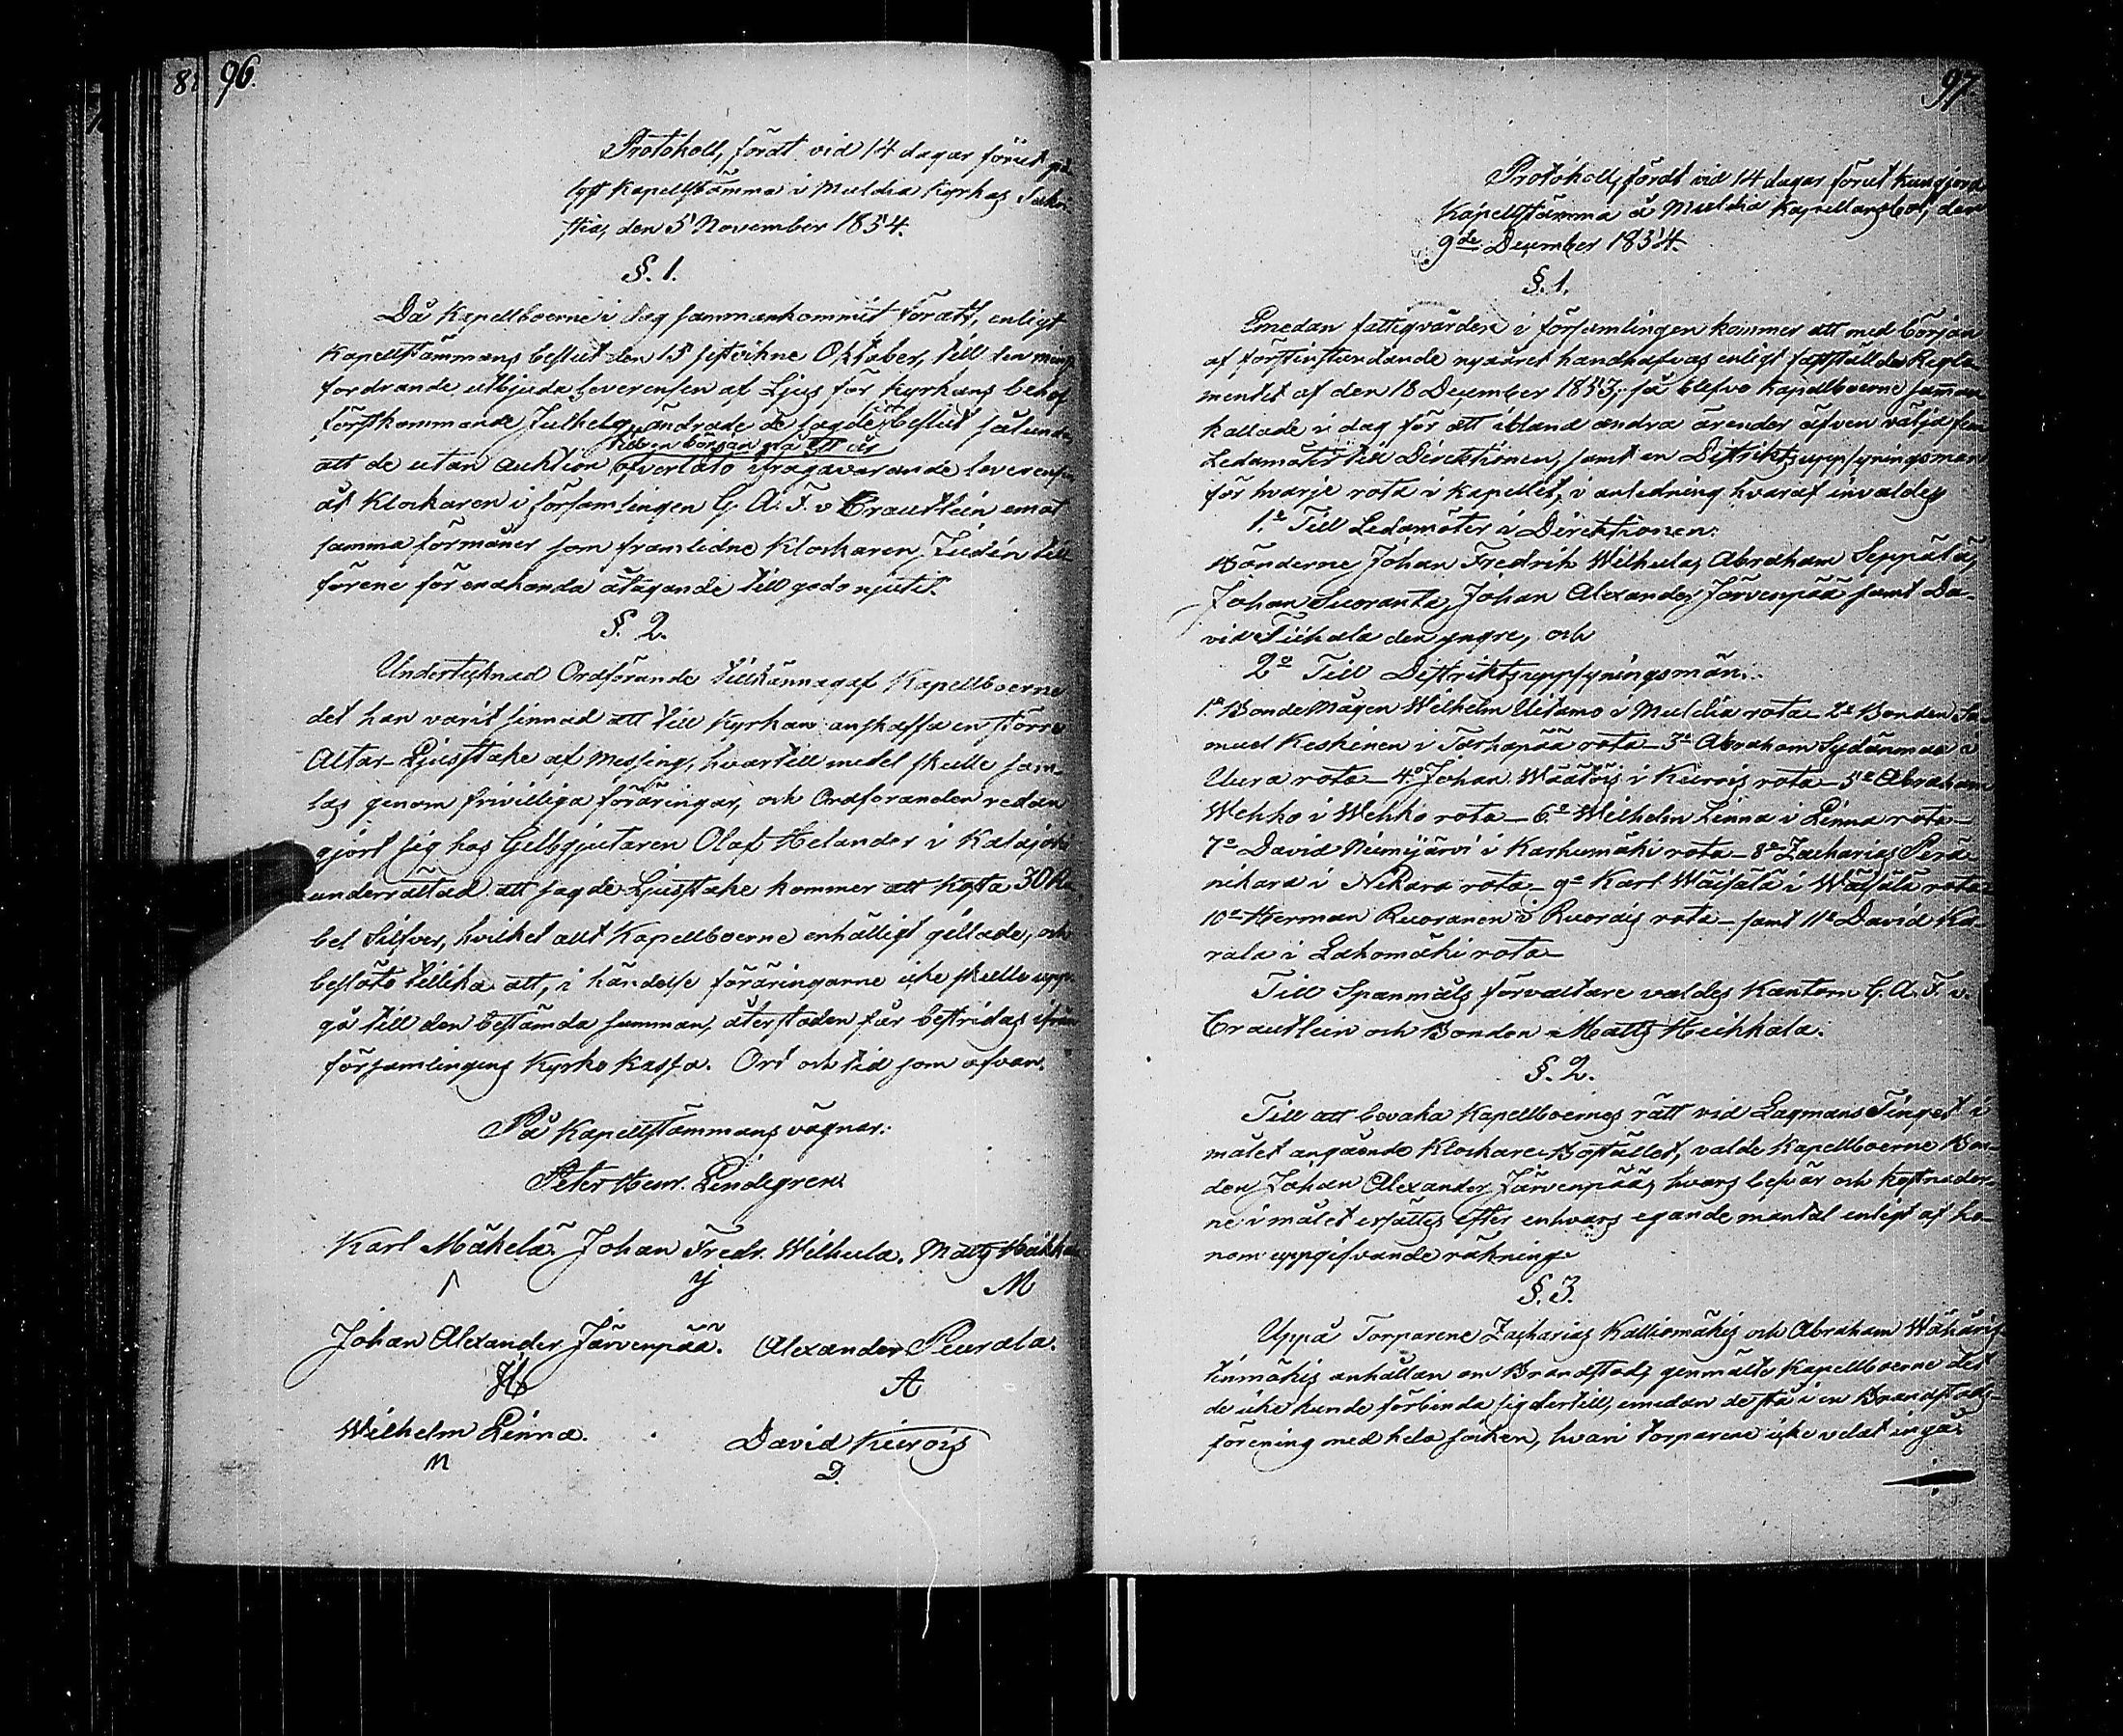 96.
Protokoll, fördt vid 14 dagar förut på-
lyst Kapellstämma i Muldia Kyrkas Sakri-
stia, den 5 November 1854.
§. 1.
Då Kapellboerne i dag sammankommit för att, enligt
Kapellstämmans beslut den 15 sistvikne Oktober, till den minst
fordrande utbjuda leverensen af Ljus för Kyrkans behof
förstkommande Julhelg, ändrade de sagde beslut sålunda,
att de utan auktion öfverläto ifrågavarande leverensen
åt Klockaren i församlingen G. A. F. v Crautlein emot
samma förmåner som framlidne Klockaren Zidén till-
förene för enahanda åtagande till godo njutit.
§. 2.
Undertecknad Ordförande tillkännagaf Kapellboerne
det han varit sinnad att till Kyrkan anskaffa en större
Altar-Ljusstake af Messing, hvartill medel skulle sam-
las genom frivilliga föräringar, och Ordföranden redan
gjort sig hos Gelbgjutaren Olaf Helander i Kalajoki
underrättad att sagde Ljusstake kommer att kosta 30 Ru-
bel Silfver, hvilket allt Kapellboerne enhälligt gillade, och
beslöto tillika att, i händelse föräringarne icke skulle upp-
gå till den bestämda summan, återstoden får bestridas ifrån
församlingens Kyrko Kassa. Ort och tid som ofvan.
På Kapellstämmans vägnar:
Peter Henr. Lindegren.
Karl Mäkelä. Johan Fredr. Wilhula. Matts Heikkala
J M
Johan Alexander Järvenpää. Alexander Peurala.
A
Wilhelm Linna. David Kiirois
D.
97
Protokoll, fördt vid 14 dagar förut kungjord
Kapellstämma å Muldia Kapellansbol, den
9de December 1854.
§. 1.
Emedan fattigvården i församlingen kommer att med början
af förstinstundande nyåret handhafvas enligt faststälda Regle-
mentet af den 18 December 1853; så blefvo Kapellboerne samman
kallade i dag för att ibland andra ärender äfven välja fem
Ledamöter till Direktionen, samt en Distriktsuppsyningsman
för hvarje rota i Kapellet, i anledning hvaraf invaldes
1.o Till Ledamöter i Direktionen:
Bönderne Johan Fredrik Wilhula, Abraham Seppälä,
Johan Suoranta, Johan Alexander Järvenpää samt Da-
vid Tiihala den yngre, och
2o Till Distriktsuppsyningsmän:
1.o Bonde Mågen Wilhelm Uitamo i Muldia rota – 2o Bonden Sa-
muel Keskinen i Tarhapää rota – 3o Abraham Sydänmaa i
Uura rota – 4.o Johan Wäätöis i Kiirois rota – 5o Abraham
Wehko i Wehko rota – 6.o Wilhelm Linna i Linna rota –
7o David Niemijärvi i Karhumäki rota – 8o Zacharias Perä-
nikara i Nikara rota – 9o Karl Wäisälä i Wäisälä rota –
10o Herman Ruoranen i Ruorais rota – samt 11o David Ka-
rala i Lahomäki rota –
Till Spanmåls förvaltare valdes Kantorn G. A. F. v.
Crautlein och Bonden Matts Heikkala.
§. 2.
Till att bevaka Kapellboernes rätt vid Lagmans Tinget i
målet angående Klockare-Bostället, valde Kapellboerne Bon-
den Johan Alexander Järvenpää, hvars besvär och kostnader-
ne i målet ersättes efter enhvars egande mantal enligt af ho-
nom uppgifvande räkning.
§. 3.
Uppå Torparene Zacharias Kalliomäkis och Abraham
anhållan om Brandstod, genmälte Kapellboerne det
de icke kunde förbinda sig dertill, emedan de stå i en Brandstods-
förening med hela socken, hvari torparene icke velat ingå.